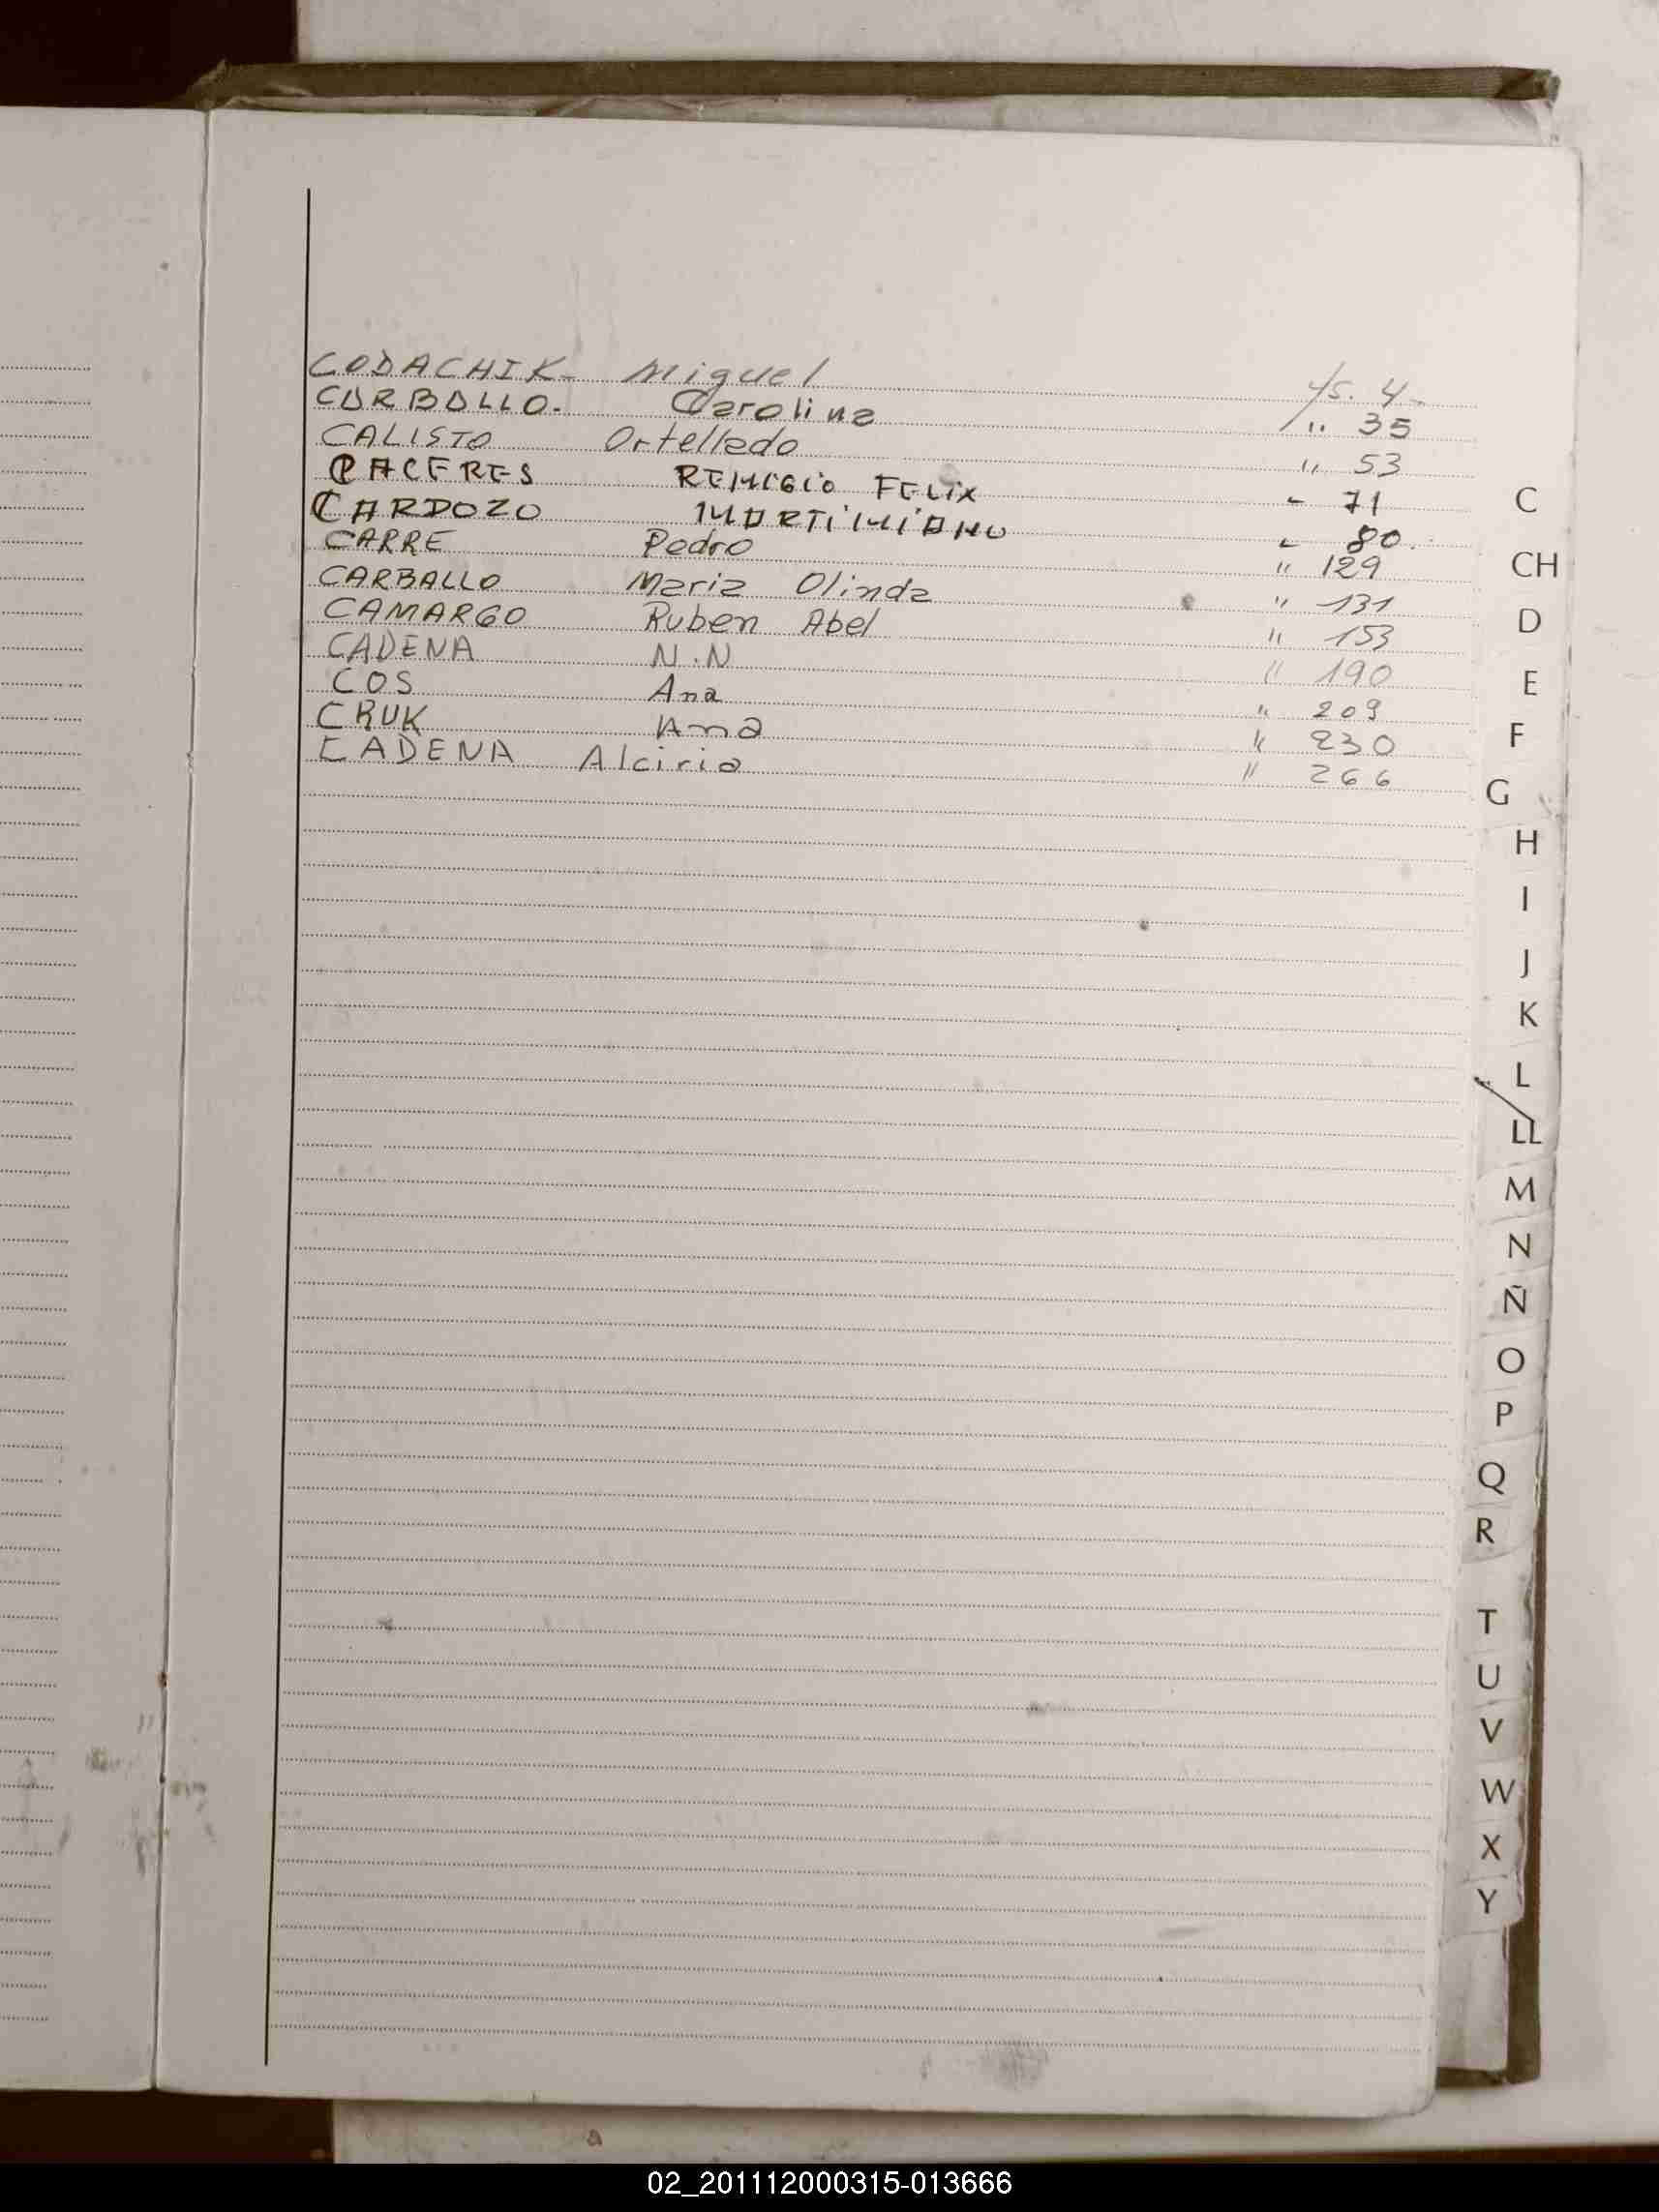 CODACHIK- Miguel fs. 4-
CARBALLO. Carolina " 35
CALISTO Ortellado " 53
CACERES REMIGIO FELIX " 71
CARDOZO MARTIMIANO " 80.
CARRE Pedro " 129
CARBALLO Maria Olinda " 131
CAMARGO Ruben Abel " 153
CADENA N.N " 190
COS Ana " 209
CRUK Ana " 230
CADENA Alciria " 266
C
CH
D
E
F
G
H
I
J
K
L
LL
M
N
Ñ
O
P
Q
R
T
U
V
W
X
Y
02_201112000315-013666